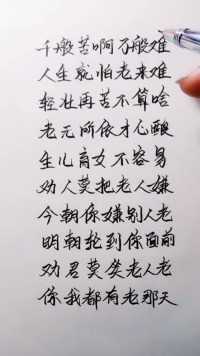 千般苦啊万般难
人生就怕老来难
轻壮再苦不算啥
老无所依才心酸
生儿育女不容易
劝人莫把老人嫌
今朝你嫌别人老
明朝轮到你面前
劝君莫笑老人老
你我都有老那天